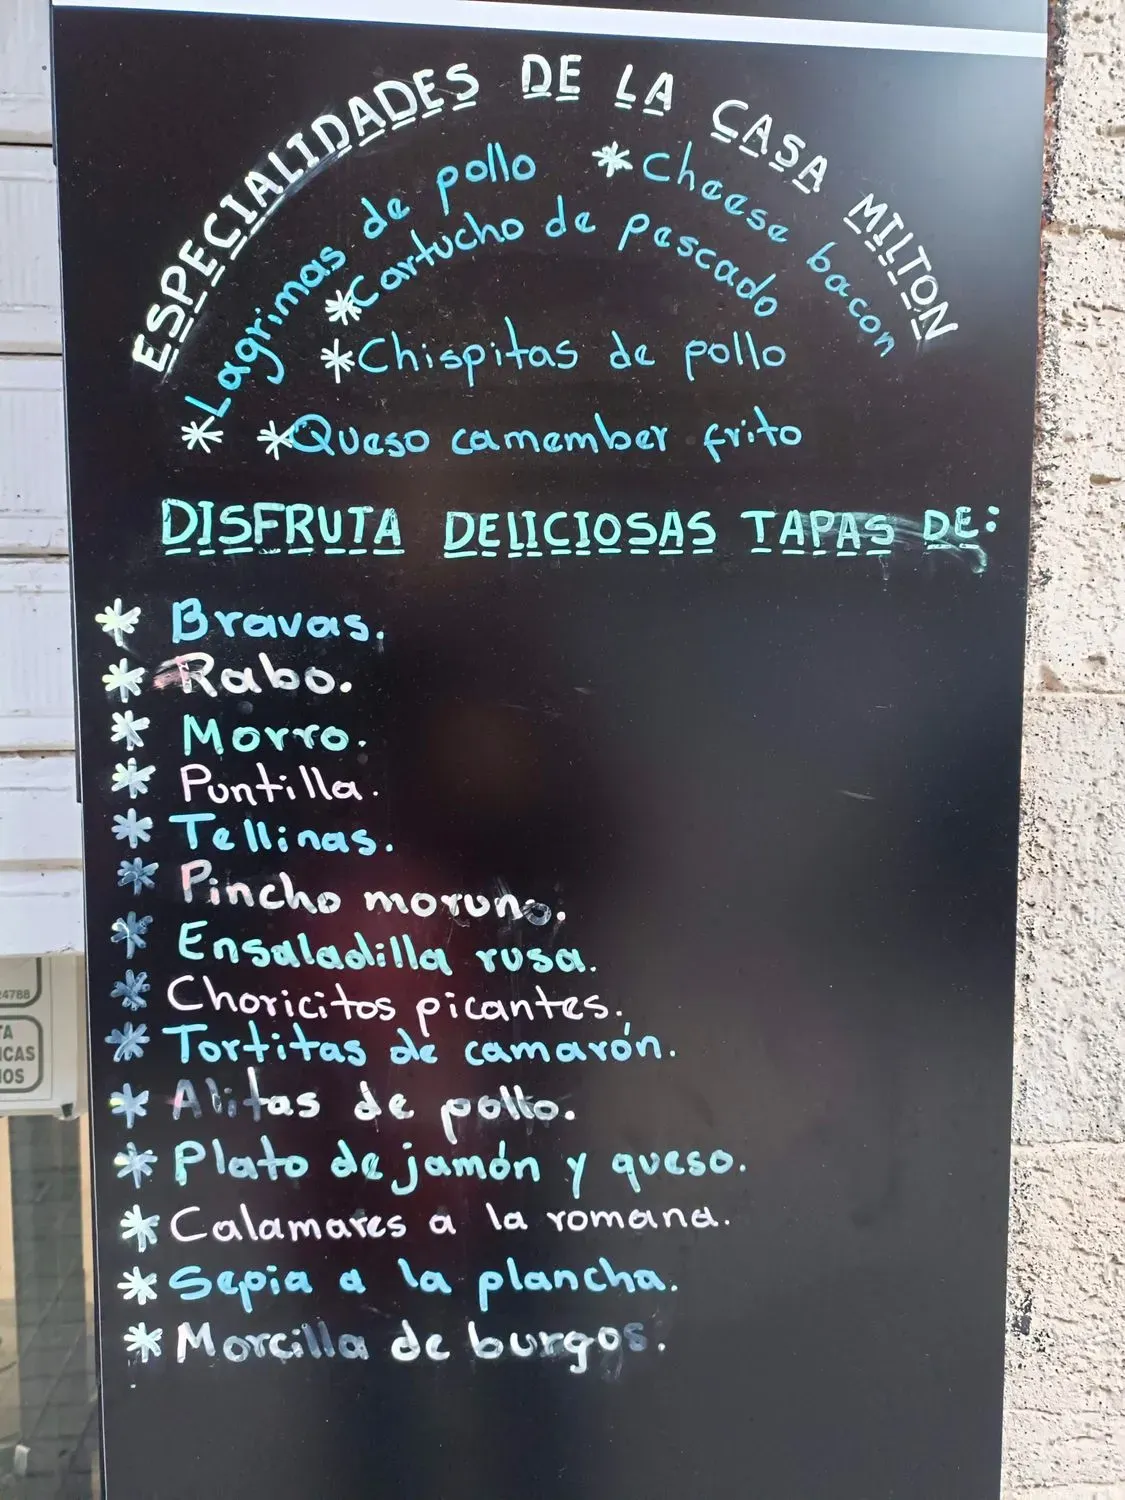 ESPECIALIDADES DE LA CASA MILTON
*Lagrimas de pollo
*Cheese bacon
*Cartucho de pescado
*Chispitas de pollo
*Queso camember frito
DISFRUTA DELICIOSAS TAPAS DE:
* Bravas.
* Rabo.
* Morro.
* Puntilla.
* Tellinas.
* Pincho moruno.
* Ensaladilla rusa.
* Choricitos picantes.
* Tortitas de camarón.
* Alitas de pollo.
* Plato de jamón y queso.
* Calamares a la romana.
* Sepia a la plancha.
* Morcilla de burgos.
24788
TA
ICAS
IOS